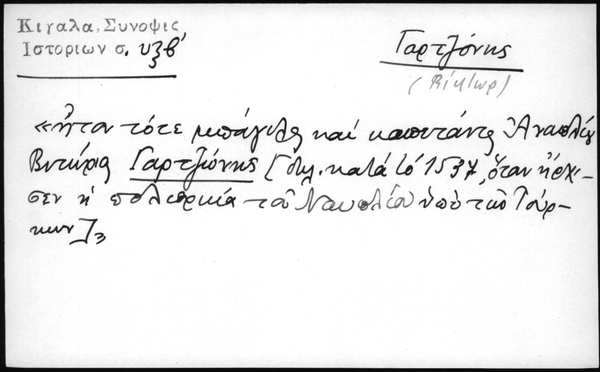 Κιγαλα, Συνοψις
Ιστοριων σ. υξβ'
Γαρτζόνης
(Βίκτωρ)
«ἦτον τότε μπάγιλος καὶ καπιτάνος Ἀναπλίου
Βιτώριος Γαρτζώνης [δηλ. κατὰ τὸ 1537, ὅταν ἤρχι-
σεν ἡ πολιορκία τοῦ Ναυπλίου ὑπὸ τῶν Τούρ-
κων]»